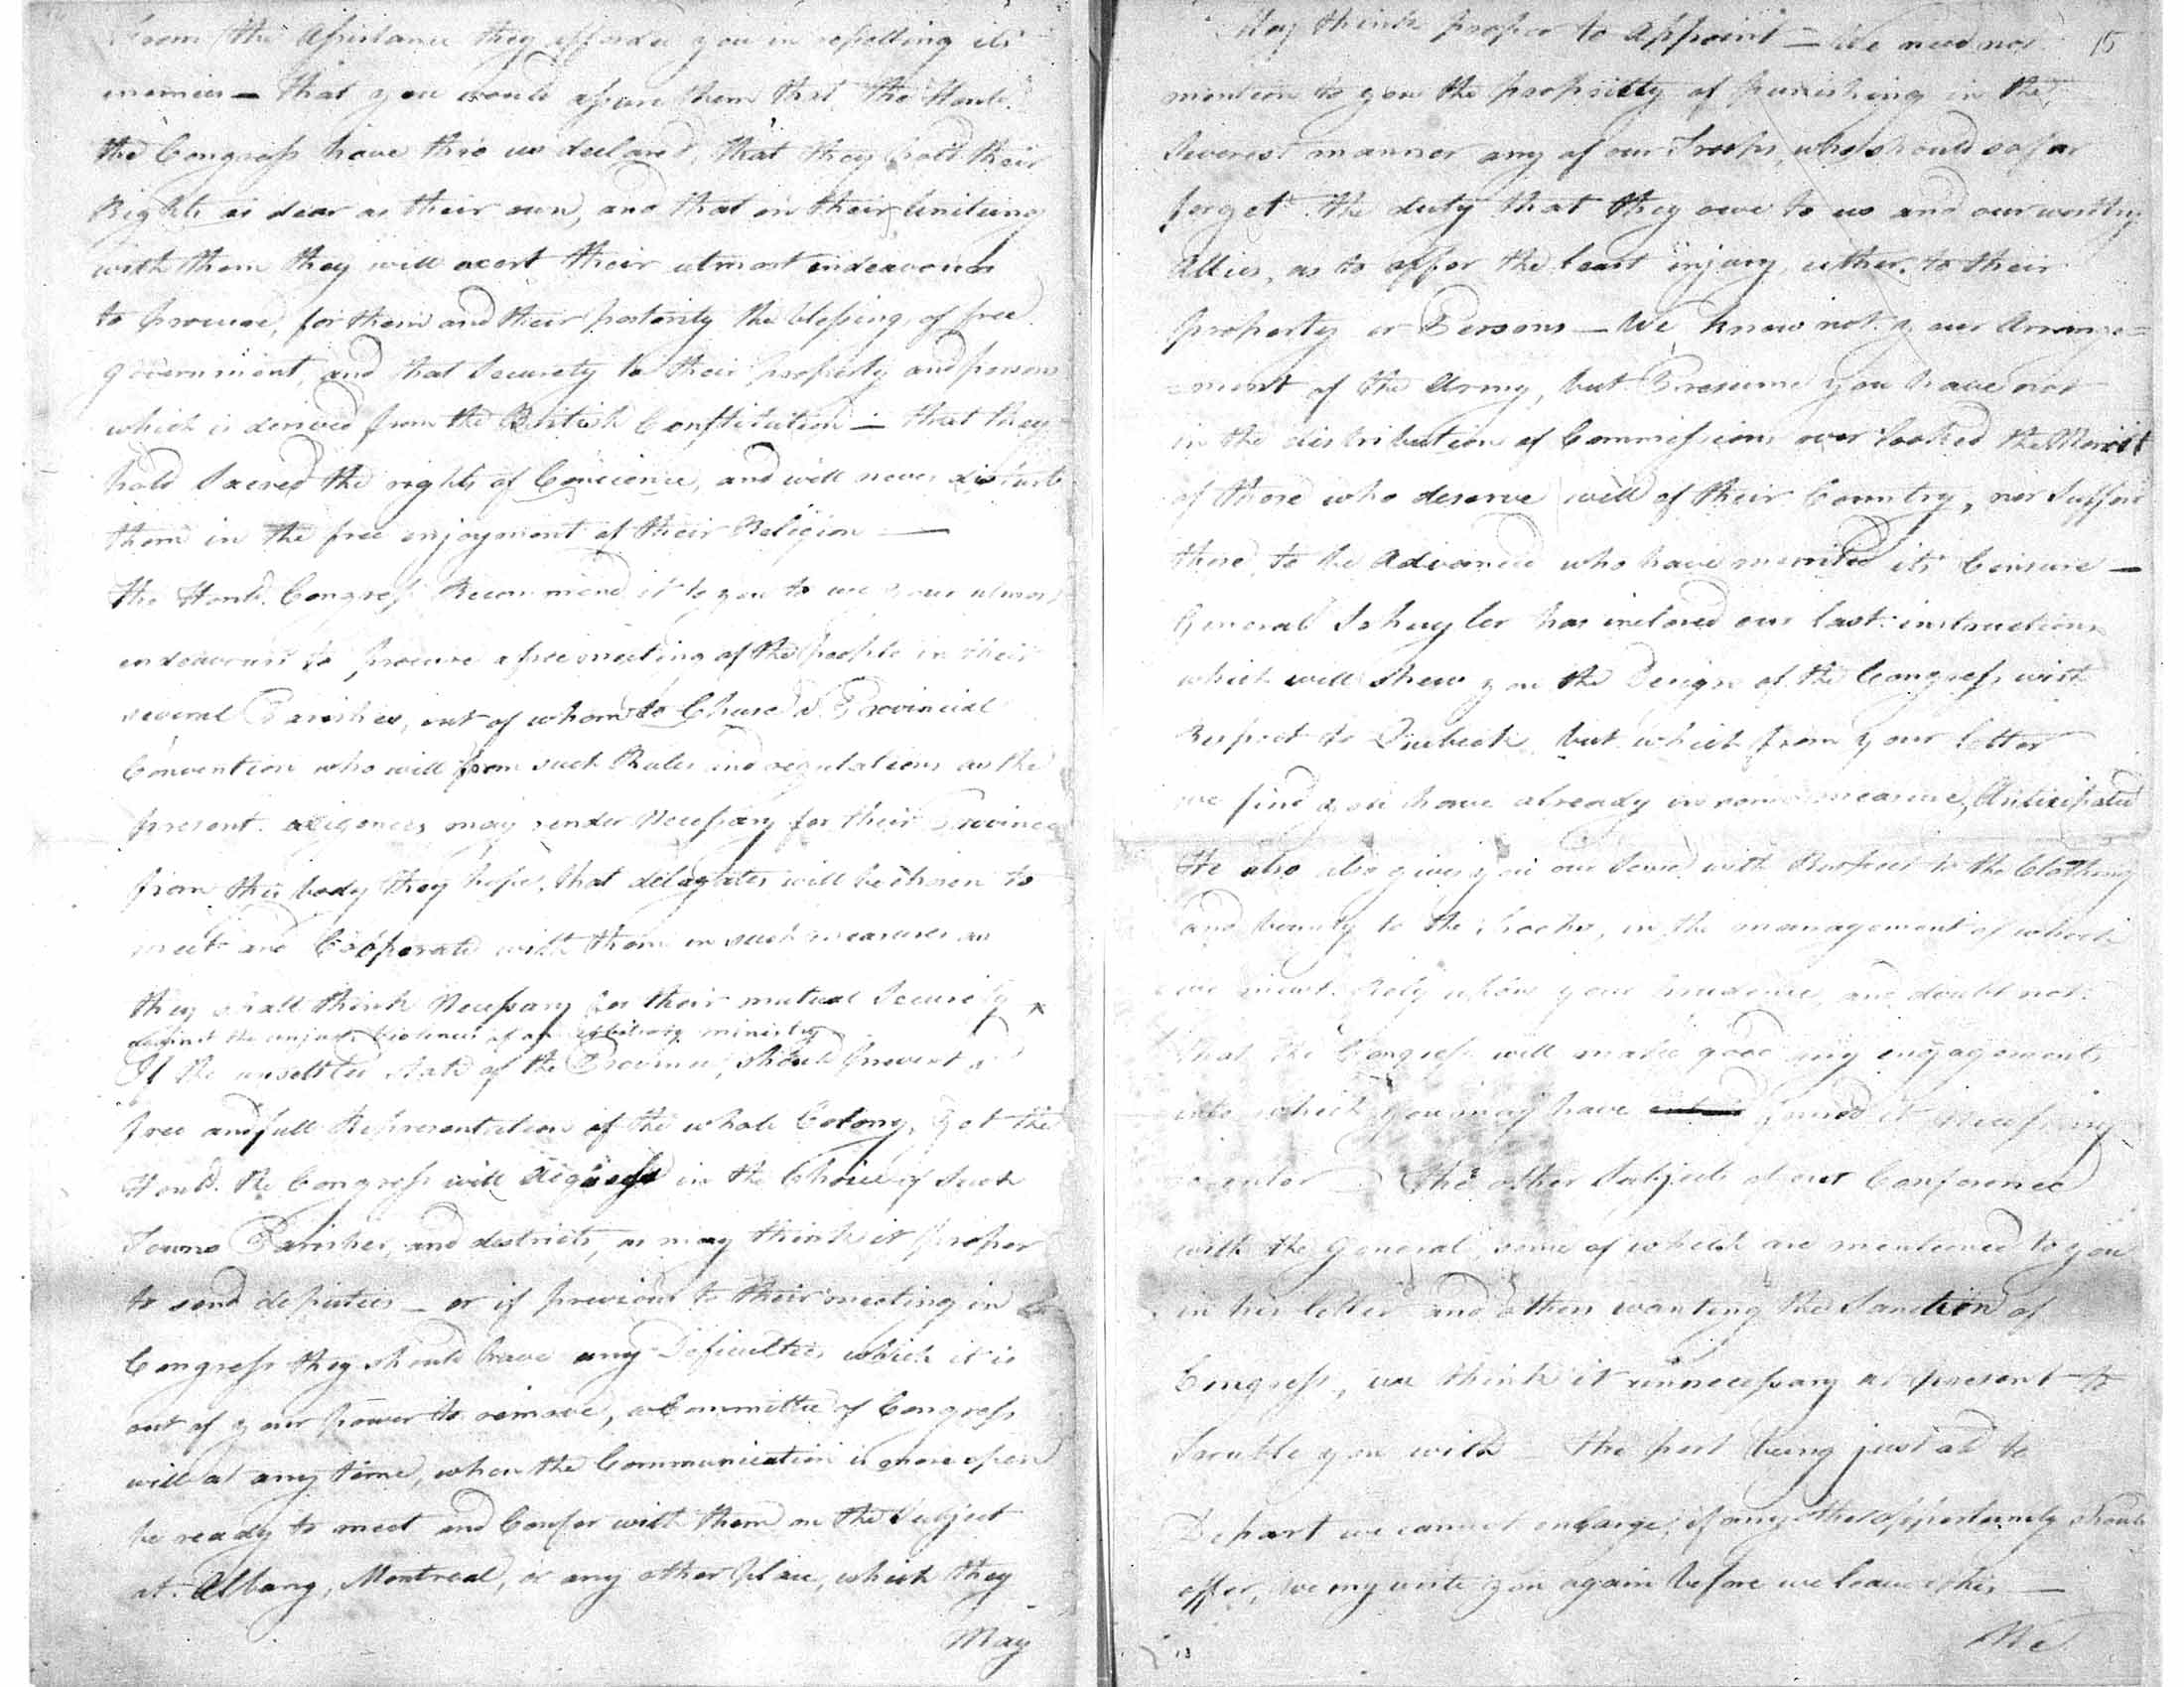 from the Assistance they afforded you in repelling its
enemies — that you would assure them that the Honbl.
the Congress have thro us declared, that they hold their
Rights as dear as their own, and that on their Uniting
with them they will exert their utmost endeavours
to procure, for them and their posterity the blessings of free
government, and that Security to their property and persons
which is derived from the British Constitution — that they
hold Sacred the rights of Concience, and will never disturb
them in the free enjoyment of their Religion —
The Honbl. Congress Recommend it to you to use your utmost
endeavours to procure a free meeting of the people in their
several Parishes, out of whom to Chuse a Provincial
Convention who will form such Rules and regulations as the
present exigences may render Necessary for their Province
from this body they hope, that delagates will be chosen to
meet and Cooperate with them in such measures as
they shall think Necessary for their mutual Security
against the unjust Violences of an arbitrary ministry
If the unsettled state of the Province, should prevent a
free and full Representation of the whole Colony, yet the
Honbl. the Congress will Acquiesce in the Choice of such
Towns Parishes, and districts, as may think it proper
to send deputies — or if previous to their meeting in
Congress they should have any Dificulties which it is
out of your power to remove, a Committee of Congress
will at any time, when the Communication is more open
be ready to meet and Confer with them on the Subject
at Albany, Montreal, or any other place, which they
May
May think proper to Appoint — We need not 15
mention to you the propriety of punishing in the
Severest manner any of our Troops, who should so far
forget the duty that they owe to us and our worthy
Allies, as to offer the least injury, either to their
property or Persons — We know not your Arrange=
=ment of the Army, but Presume you have not
in the distribution of Commissions over looked the Merit
of those who deserve well of their Country, nor Suffer
those to be Advanced who have merited its Censure —
General Schuyler has inclosed our last instructions
which will shew you the Design of the Congress with
Respect to Quebeck, but which from your letter
we find you have already in some measure, Anticipated
He also also gives you our Sense with Respect to the Clothing
and bounty to the Troops, in the management of which
we must Rely upon your Prudence, and doubt not
that the Congress will make good any engagements
into which you may have found it Necessary
to enter — The other Subjects of our Conference
with the General, some of which are mentioned to you
in his letter and others wanting the Sanction of
Congress, we think it unnecessary at present to
Trouble you with — the post being just ab to
Depart we cannot enlarge, if any other oppertunity should
offer, we my write you again before we leave this —
We
13